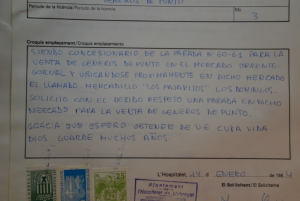 GENERES DE PUNTO
Període de la llicència / Periodo de la licencia
3
Croquis emplaçament / Croquis emplazamiento
SIENDO CONCESIONARIO DE LA PARADA Nº 60-61 PARA LA
VENTA DE GENERIS DE PUNTO EN EL MERCADO TORRENTE
GORNAL Y UBICANDOSE PROXIMAMENTE EN DICHO MERCADO
EL LLAMADO MERCADILLO "LOS PAJARITOS" LOS DOMINGOS.
SOLICITO CON EL DEBIDO RESPETO UNA PARADA EN DICHO
MERCADO PARA LA VENTA DE GENERES DE PUNTO.
GRACIA QUE ESPERO OBTENER DE VE CUYA VIDA
DIOS GUARDE MUCHOS AÑOS.
L'Hospitalet, 14 ENERO de 198
Ajuntament de
El Sol·licitant / El Solicitante